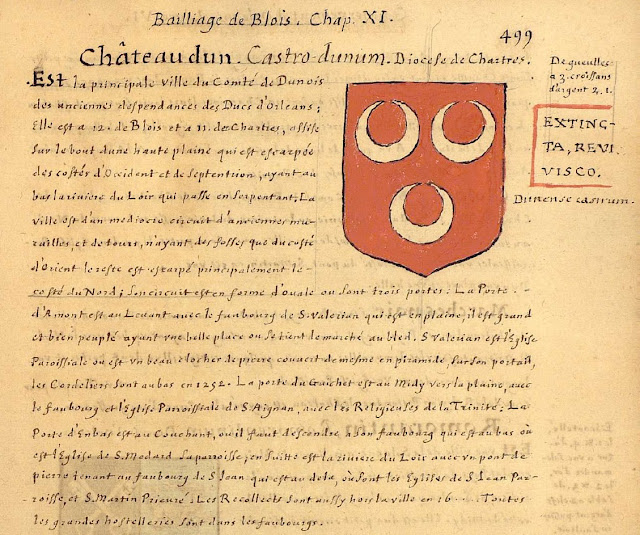 Bailliage de Blois. Chap. XI.
499
Châteaudun. Castro-dunum. Diocese de Chartres.
De gueulles
a 3. croissans
d'argent 2. 1.
EXTING-
TA, REVI
VISCO.
Dunense castrum.
.Est la principale ville du Comté de Dunois
des anciennes despendances des Ducs d'Orleans;
Elle est a 12. de Blois et a 11. de Chartres, assise
sur le bout d'une haute plaine qui est escarpée
des costés d'Occident et de Septentrion, ayant au
bas la riviere du Loir qui passe en serpentant. La
ville est d'un mediocre circuit d'anciennes mu-
railles et de tours, n'ayant des fosses que du costé
d'Orient le reste est escarpé principalement le
costé du Nord; son circuit est en forme d'ovale ou sont trois portes: La Porte
d'Amont est au Levant avec le faubourg de S. Valerian qui est en plaine, il est grand
et bien peuplé ayant une belle place ou se tient le marché au bled. S. Valerian est l'Eglise
Paroissiale ou est un beau clocher de pierre couvert de mesme en piramide, sur son portail,
les Cordeliers sont au bas en 1252. La porte du Guichet est au Midy vers la plaine, avec
le faubourg et l'Eglise Parroissiale de S. Aignan, avec les Religieuses de la Trinité: La
Porte d'Enbas est au Couchant, ou il faut descendre a son faubourg qui est au bas où
est l'Eglise de S. Medard sa parroisse, en suitte est la riviere du Loir avec un pont de
pierre tenant au faubourg de S. Jean qui est au dela, où sont les Eglises de S. Jean Par-
roisse, et S. Martin Prieuré: Les Recollects sont aussy hors la ville en 16... Toutes
les grandes hostelleries sont dans les faubourgs.